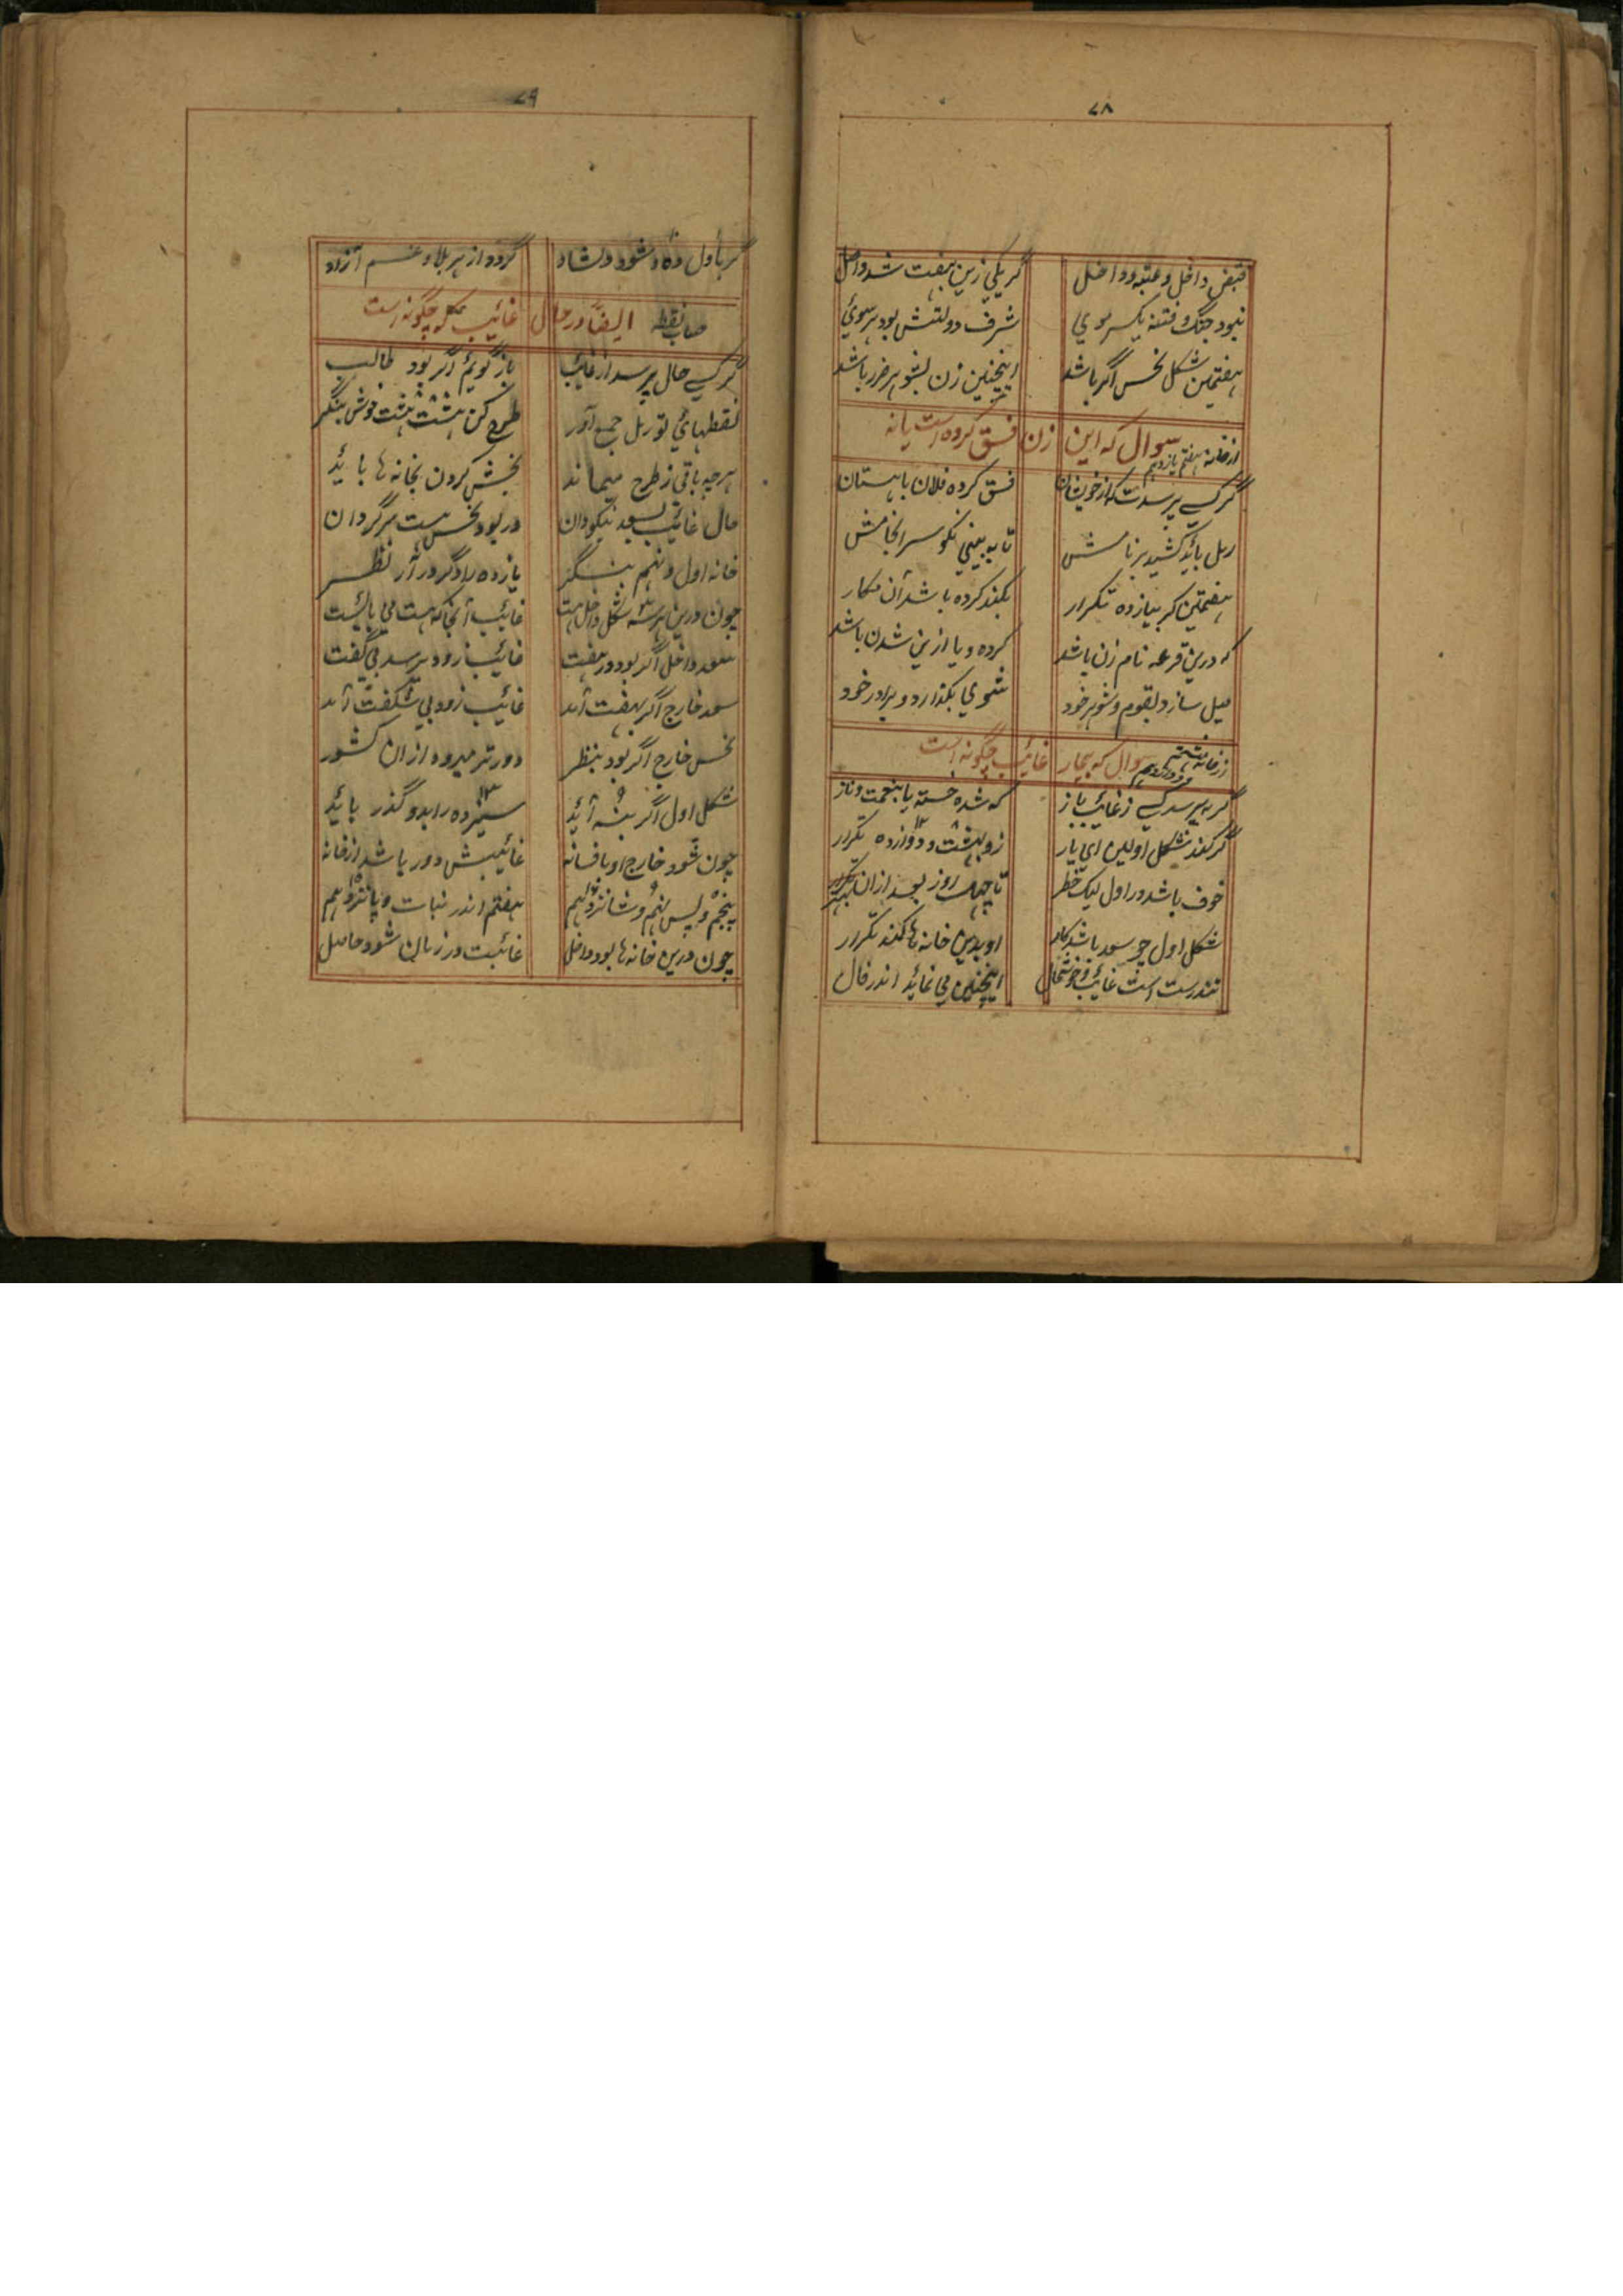 ۷۸
قبض داخل و عتبه داخل گر یکی زین بهفت شد داخل
نبود جنگ و فتنه یکسر موی شرف دولتش بود هر سوئ
هفتمین شکل نحس اگر باشد اینچنین زن بشوهر ضرر باشد
از خانه هفتم یازدهم سوال که این زن فسق کرده است یا نه
گر کسے پرسدت که از خویشان فسق کرده فلان باهستان
رمل بائد کشید بر نامش تا به بینی نکو سرانجامش
هفتمین گر بیازده تکرار بکند کرده باشد آن مکار
که درین قرعه نام زن باشد کرده و یا ازین شدن باشد
میل سازد بقوم و شوهر خود شوی بگذارد و برادر خود
از خانه هشتم و دوازدهم سوال که بیمار غائب چگونه است
گر بپرسد کسے ز غائب باز که شده خسته یا بنعمت و ناز
گر کند شکل اولین ای یار زو بهشت و دوازده تکرار
خوف باشد در اول لیک خطر تا چهل روز بعد ازان بهتر
شکل اول چو سعد باشد کار او بدین خانه ها کند تکرار
تندرست است غائب و خوشحال اینچنین می نمائد اندر فال
۷۹
گر باول ده و شود دلشاد گردد از هر بلا و غم آزاد
حساب نقطه ایضاً در حال غائب که چگونه است
گر کسے حال پرسد از غائب باز گویم اگر بود طالب
نقطهائ تو رمل جمع آور طرح کن هشت هشت خوش بنگر
هرچه باقی ز طرح میماند بخش کردن بخانه ها بائد
حال غائب بسعد نیکو دان ور بود نحس هست سرگردان
خانه اول و نهم بنگر یازده را دگر در آر نظر
چون درین هر سه شکل داخل هست غائب آنجا که هست می بائست
سعد داخل اگر بود در هفت غائب زود برسد بی گفت
سعد خارج اگر بهفت آمد غائب زود بی شگفت آمد
نحس خارج اگر بود بنظر دورتر میرود ازان کشور
شکل اول اگر بنه آئد سیزده را بدو گذر بائد
چون شود خارج او با فسانه غائبش دور باشد از خانه
پنجم و پس نهم و شانزدهم هفتم اندر نبات و پانزدهم
چون درین خانه ها بود داخل غائبت در زمان شود حاصل